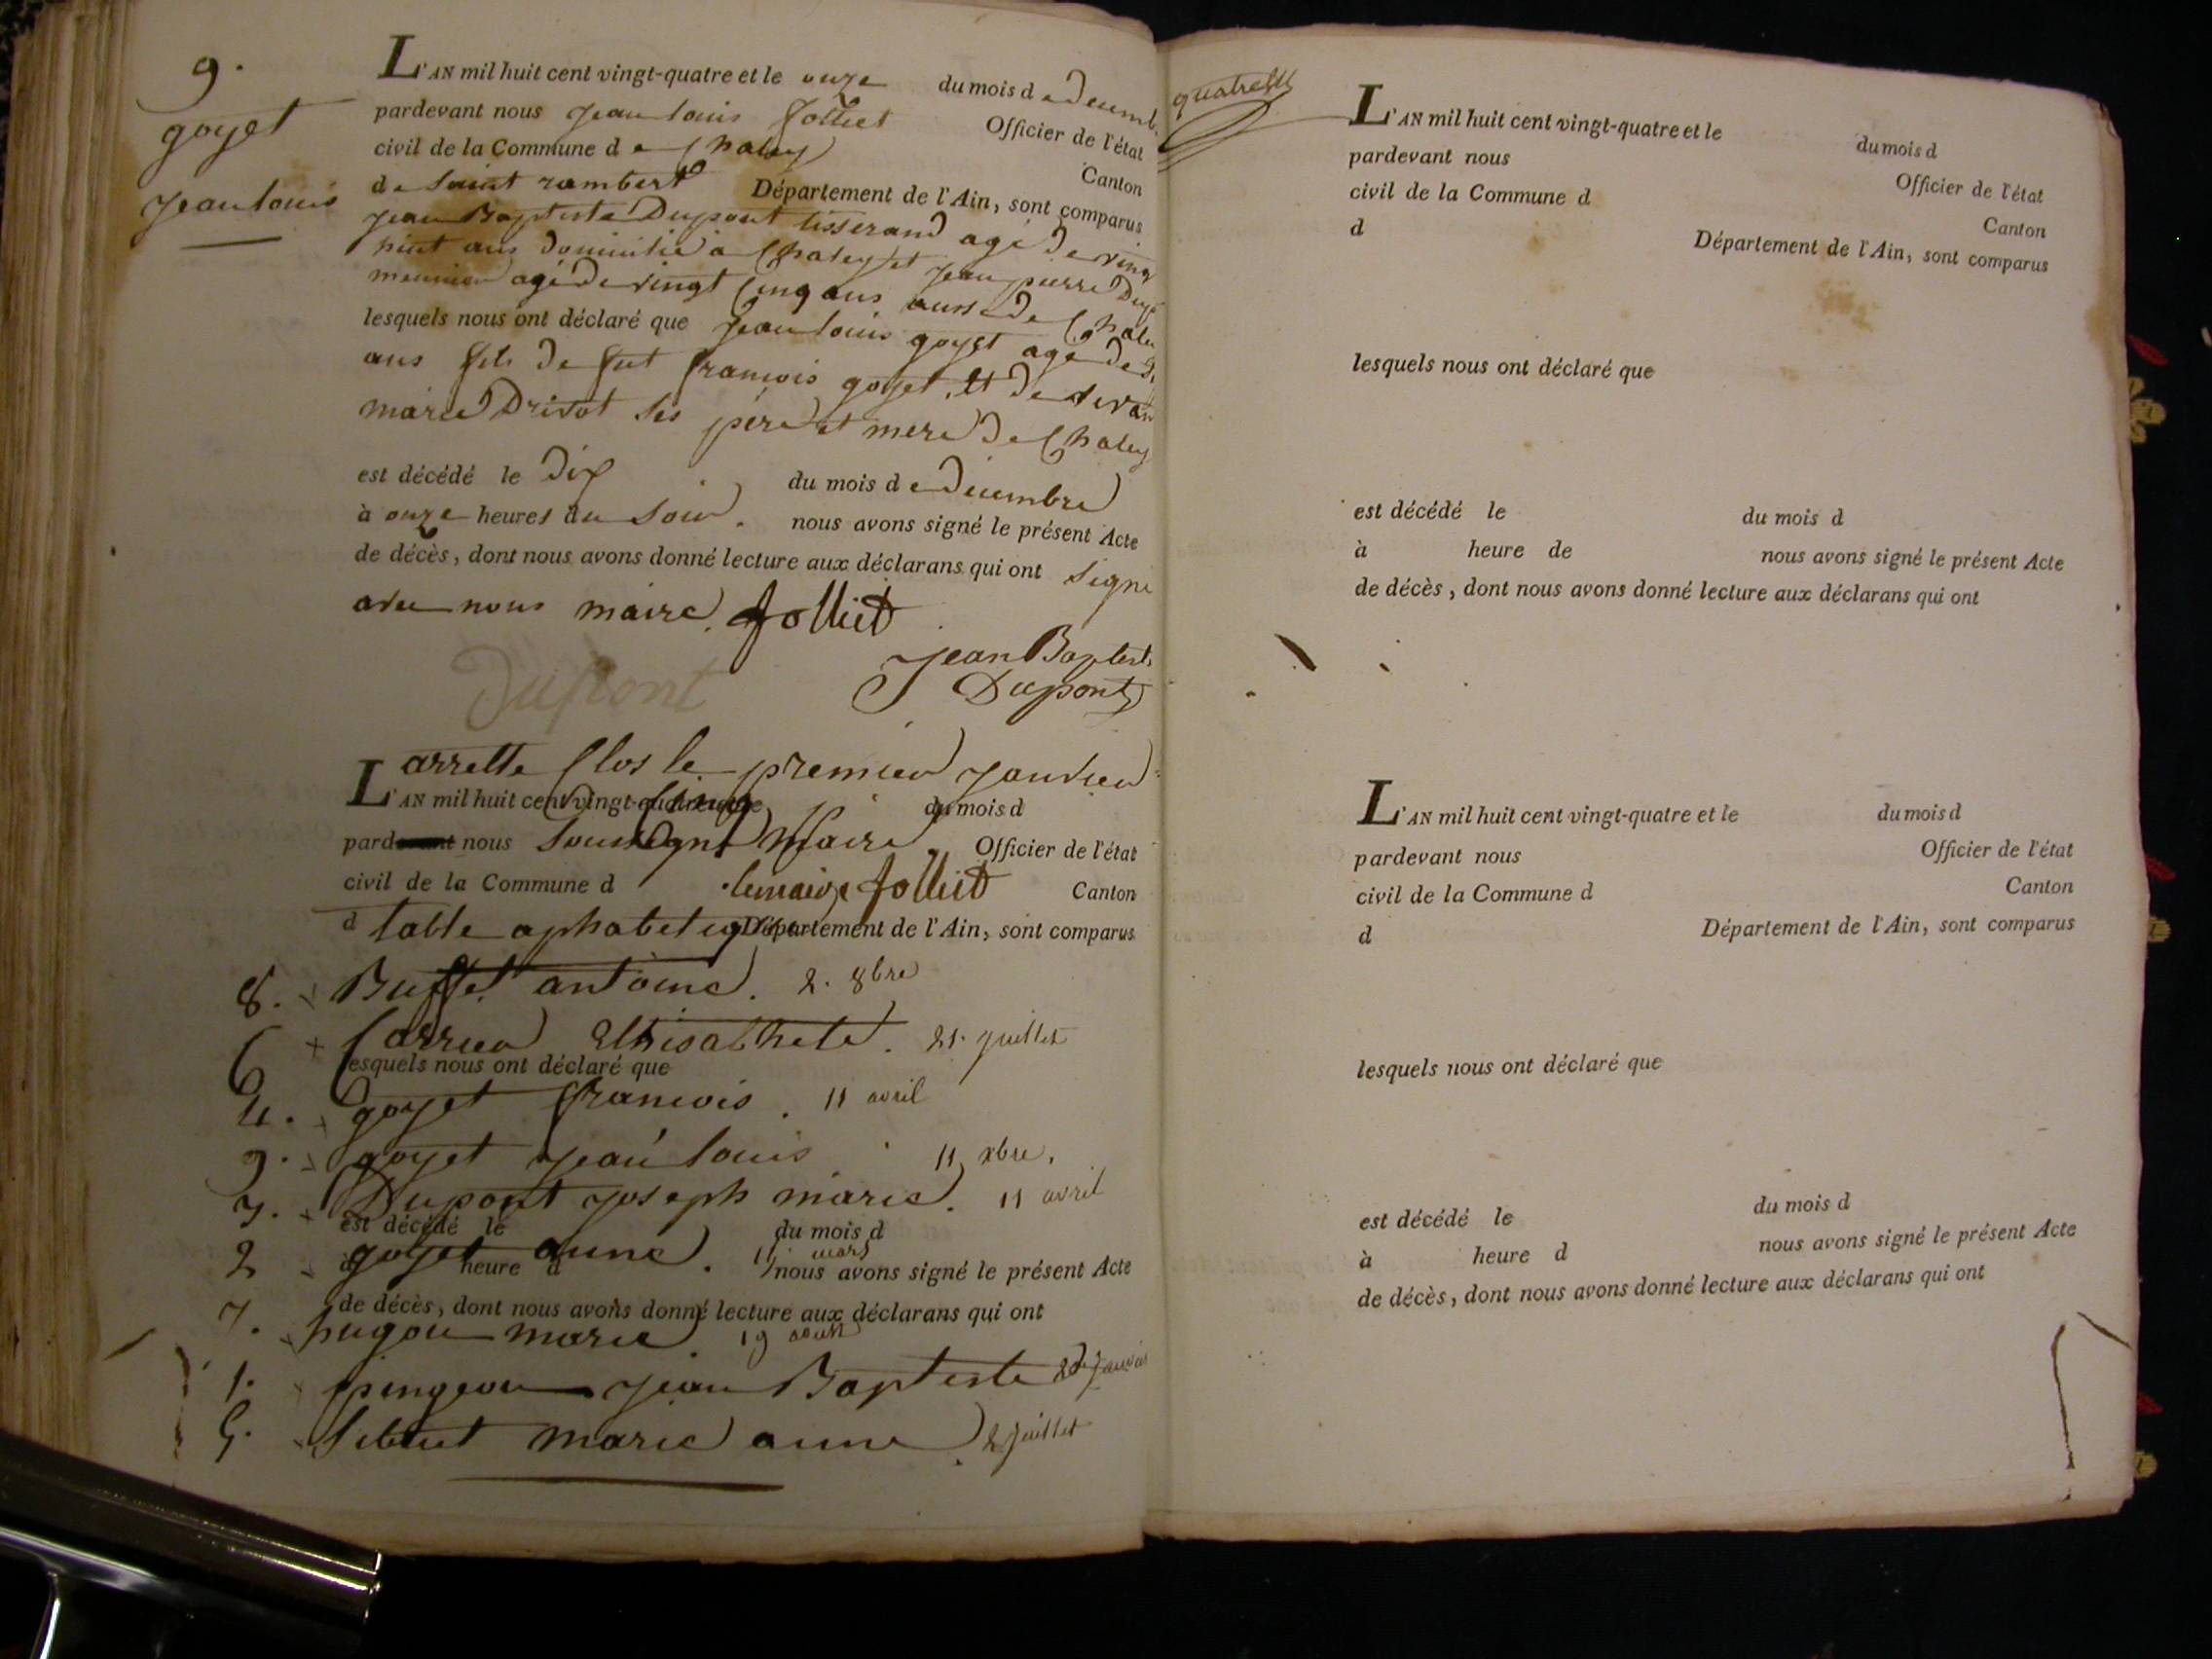 9.
goyet
jean louis
L'AN mil huit cent vingt-quatre et le onze du mois de Decemb
pardevant nous jean louis Jolliet Officier de l'état
civil de la Commune de Chaley Canton
de saint rambert Département de l'Ain, sont comparus
jean Baptiste Dupont tisserand agé de vingt
huit ans domicilié a Chaley et jean pierre Dup
meunier agé de vingt Cinq ans aussi de Chaley
lesquels nous ont déclaré que jean louis goyet agé de
ans fils de fut francois goyet et de
marie Drivot ses père et mere de Chaley
est décédé le dix du mois de Decembre
à onze heures du soir. nous avons signé le présent Acte
de décès, dont nous avons donné lecture aux déclarans qui ont signé
avec nous maire. Jolliet
Jean Baptiste
Dupont
Dupont
arrette Clos le premier janvier
L'AN mil huit cent vingt-quatre et le Cinq du mois d
pardevant nous soussigné Maire Officier de l'état
civil de la Commune d le maire Jolliet Canton
d table aphabetique Département de l'Ain, sont comparus
8. Buffet antoine. 2. 8bre
6 Carrier Elhisabhete. 21. juillet
lesquels nous ont déclaré que
4. goyet francois. 11 avril
9. goyet jean louis 11 xbre.
3. Dupont joseph marie. 11 avril
est décédé le du mois d
2 goyet anne. 11 mars
à heure d nous avons signé le présent Acte
de décès, dont nous avons donné lecture aux déclarans qui ont
7. hugon marie. 19 aoust
1. pingeon jean Baptiste janvier
5. Sibuet marie anne 2 juillet
L'AN mil huit cent vingt-quatre et le du mois d
pardevant nous Officier de l'état
civil de la Commune d Canton
d Département de l'Ain, sont comparus
lesquels nous ont déclaré que
est décédé le du mois d
à heure de nous avons signé le présent Acte
de décès, dont nous avons donné lecture aux déclarans qui ont
L'AN mil huit cent vingt-quatre et le du mois d
pardevant nous Officier de l'état
civil de la Commune d Canton
d Département de l'Ain, sont comparus
lesquels nous ont déclaré que
est décédé le du mois d
à heure d nous avons signé le présent Acte
de décès, dont nous avons donné lecture aux déclarans qui ont